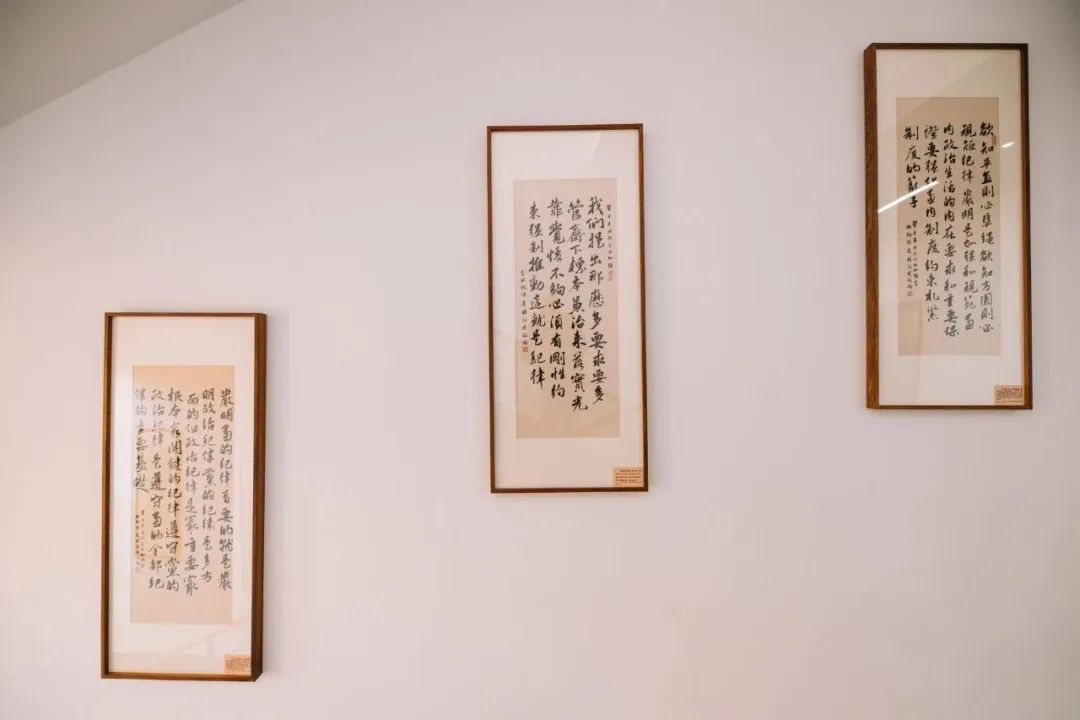 嚴明黨的紀律首要的就是嚴
明政治紀律黨的紀律是多方
面的但政治紀律是最重要最
根本最關鍵的紀律遵守黨的
政治紀律是遵守黨的全部紀
律的重要基礎
我們提出那麽多要求要多
管齊下標本兼治來落實光
靠覺悟不夠必須有剛性約
束强制推動這就是紀律
欲知平直則必準繩欲知方圓則必
規矩紀律嚴明是加强和規範黨
內政治生活的內在要求和重要保
證要强化黨內制度約束扎緊
制度的籠子